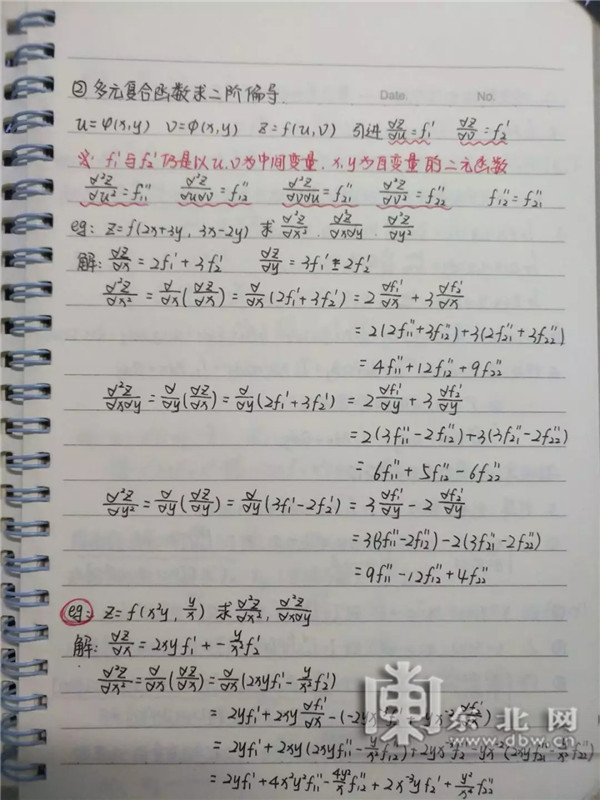 Date. No.
②多元复合函数求二阶偏导.
u=φ(x,y) v=φ(x,y) z=f(u,v) 引进 ∂z/∂u=f₁' ∂z/∂v=f₂'
※: f₁'与f₂'仍是以u,v为中间变量,x,y为自变量的二元函数
∂²z/∂u²=f₁₁'' ∂²z/∂u∂v=f₁₂'' ∂²z/∂v∂u=f₂₁'' ∂²z/∂v²=f₂₂'' f₁₂''=f₂₁''
eg: z=f(2x+3y, 3x-2y) 求 ∂²z/∂x², ∂²z/∂x∂y, ∂²z/∂y²
解: ∂z/∂x=2f₁'+3f₂' ∂z/∂y=3f₁'-2f₂'
∂²z/∂x²=∂/∂x(∂z/∂x)=∂/∂x(2f₁'+3f₂')=2∂f₁'/∂x+3∂f₂'/∂x
=2(2f₁₁''+3f₁₂'')+3(2f₂₁''+3f₂₂'')
=4f₁₁''+12f₁₂''+9f₂₂''
∂²z/∂x∂y=∂/∂y(∂z/∂x)=∂/∂y(2f₁'+3f₂')=2∂f₁'/∂y+3∂f₂'/∂y
=2(3f₁₁''-2f₁₂'')+3(3f₂₁''-2f₂₂'')
=6f₁₁''+5f₁₂''-6f₂₂''
∂²z/∂y²=∂/∂y(∂z/∂y)=∂/∂y(3f₁'-2f₂')=3∂f₁'/∂y-2∂f₂'/∂y
=3(3f₁₁''-2f₁₂'')-2(3f₂₁''-2f₂₂'')
=9f₁₁''-12f₁₂''+4f₂₂''
eg: z=f(x²y, y/x) 求∂²z/∂x², ∂²z/∂x∂y
解: ∂z/∂x=2xyf₁'+-y/x²f₂'
∂²z/∂x²=∂/∂x(∂z/∂x)=∂/∂x(2xyf₁'-y/x²f₂')
=2yf₁'+2xy∂f₁'/∂x-(-2yx⁻³f₂'+yx⁻²∂f₂'/∂x)
=2yf₁'+2xy(2xyf₁₁''-y/x²f₁₂'')+2yx⁻³f₂'-yx⁻²(2xyf₂₁''-y/x²f₂₂'')
=2yf₁'+4x²y²f₁₁''-4y²/xf₁₂''+2x⁻³yf₂'+y²/x⁴f₂₂''
東北网
www.dbw.cn